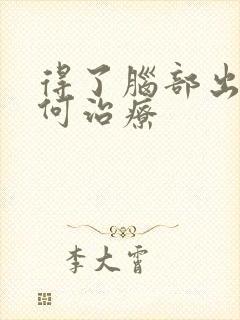 得了腦部出
何治療
李大霄